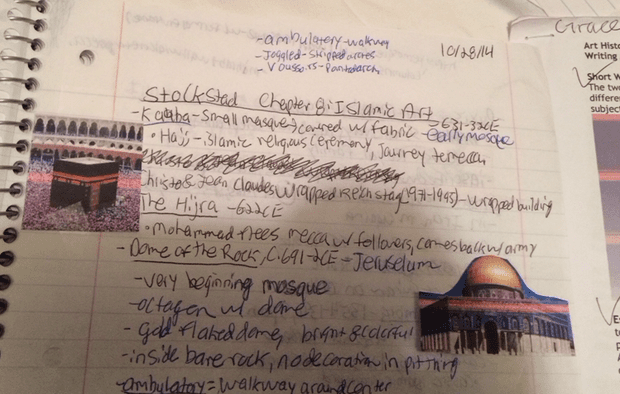 -ambulatory-walkway
Joggled-stripped arches
-Voussoirs-part of arch
10/28/14
Stockstad Chapter 8: Islamic Art
-Kaaba-small mosque, covered w/ fabric -631-32CE
-early mosque
•Hajj-islamic religious ceremony, journey to mecca
Christo & Jean Claudes Wrapped Reichstag (1971-1995)-wrapped building
The Hijra -622CE
•Mohammad flees mecca w/ followers, comes back w/ army
-Dome of the Rock, C.691-2CE-Jeruselum
-very beginning mosque
-octagon w/ dome
-gold flaked dome, bright & colorful
-inside bare rock, no decoration in pit thing
-ambulatory=walkway around center
Grace
Art Histo
Writing
Short W
The two
differe
subject